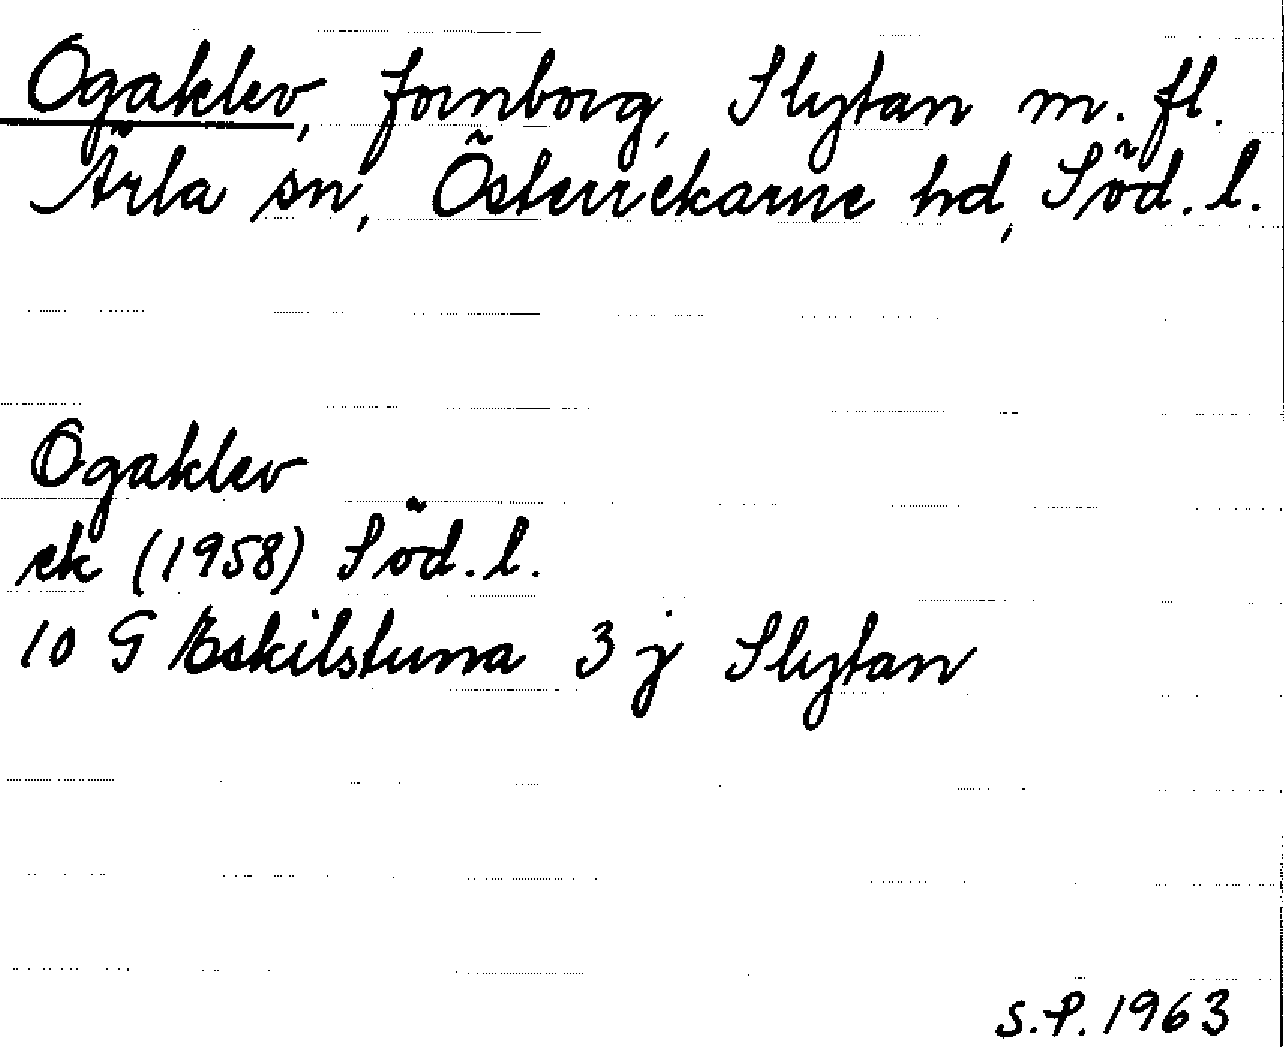 Ogaklev, fornborg, Slytan m. fl.
Ärla sn, Österrekarne hd, Söd. l.
Ogaklev
ek (1958) Söd. l.
10 G Eskilstuna 3 j Slytan
S.P. 1963